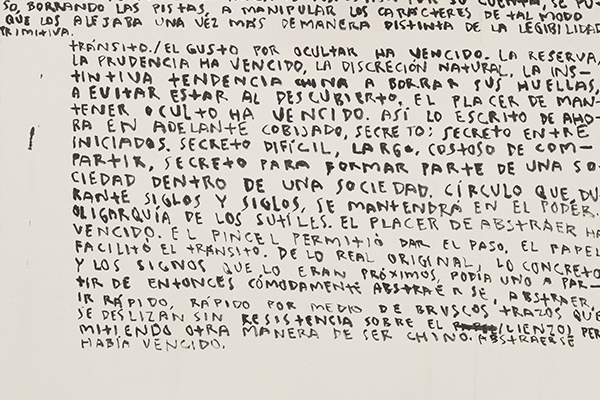 SO, BORRANDO LAS PISTAS, A MANIPULAR LOS CARACTERES DE TAL MODO
QUE LOS ALEJABA UNA VÉZ MÁS DE MANERA DISTINTA DE LA LEGIBILIDAD
PRIMITIVA.
TRÁNSITO./EL GUSTO POR OCULTAR HA VENCIDO. LA RESERVA,
LA PRUDENCIA HA VENCIDO, LA DISCRECIÓN NATURAL, LA INS-
TINTIVA TENDENCIA CHINA A BORRAR SUS HUELLAS,
A EVITAR ESTAR AL DESCUBIERTO, EL PLACER DE MAN-
TENER OCULTO HA VENCIDO. ASÍ LO ESCRITO DE AHO-
RA EN ADELANTE COBIJADO, SECRETO; SECRETO ENTRE
INICIADOS. SECRETO DIFÍCIL, LARGO, COSTOSO DE COM-
PARTIR, SECRETO PARA FORMAR PARTE DE UNA SO-
CIEDAD DENTRO DE UNA SOCIEDAD. CÍRCULO QUE, DU-
RANTE SIGLOS Y SIGLOS, SE MANTENDRÁ EN EL PODER.
OLIGARQUÍA DE LOS SUTILES. EL PLACER DE ABSTRAER HA
VENCIDO. EL PINCEL PERMITIÓ DAR EL PASO, EL PAPEL
FACILITÓ EL TRÁNSITO. DE LO REAL ORIGINAL, LO CONCRETO
Y LOS SIGNOS QUE LO ERAN PRÓXIMOS, PODÍA UNO A PAR-
TIR DE ENTONCES CÓMODAMENTE ABSTRAERSE, ABSTRAER,
IR RÁPIDO, RÁPIDO POR MEDIO DE BRUSCOS TRAZOS QUE
SE DESLIZAN SIN RESISTENCIA SOBRE EL /LIENZO/ PER
MITIENDO OTRA MANERA DE SER CHINO. ABSTRAERSE
HABÍA VENCIDO.